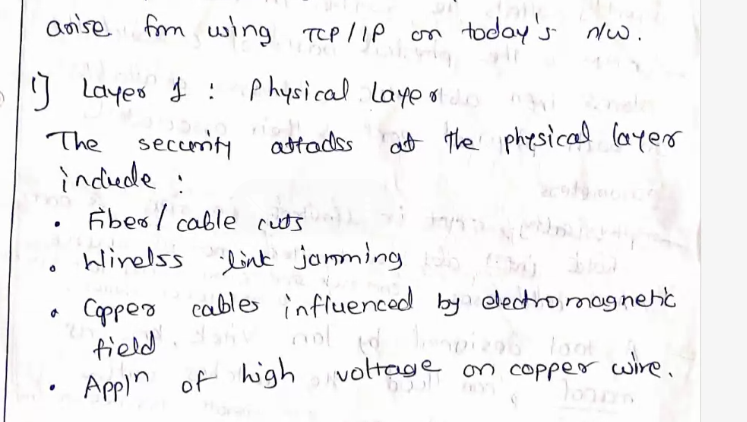 arise from using TCP/IP on today's n/w.
1) Layer 1 : Physical Layer
The security attacks at the physical layer
include :
• Fiber / cable cuts
• Wirelss link jamming
• Copper cables influenced by electromagnetic
field
• Appln of high voltage on copper wire.